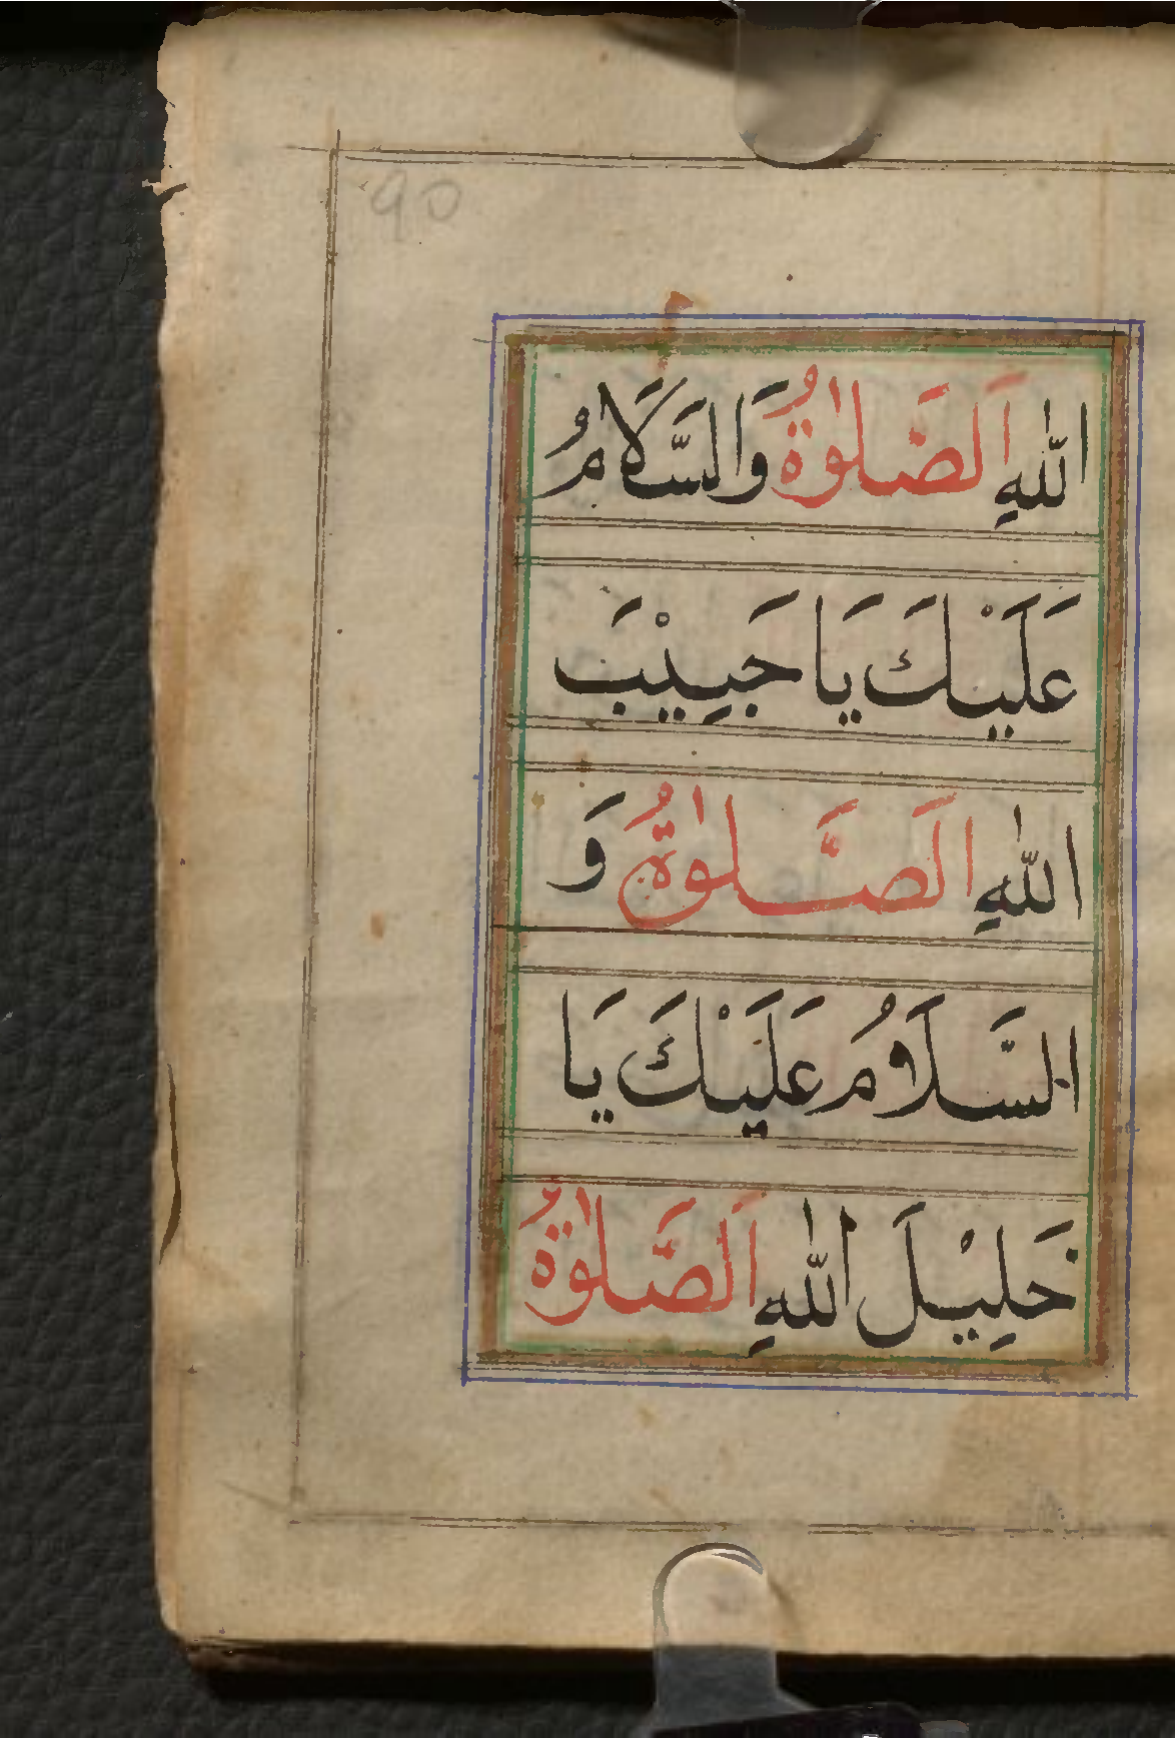 90
اللّٰهِ اَلصَّلٰوةُ وَالسَّلَامُ
عَلَيْكَ يَا حَبِيْبَ
اللّٰهِ اَلصَّلٰوةُ وَ
السَّلَامُ عَلَيْكَ يَا
خَلِيْلَ اللّٰهِ اَلصَّلٰوةُ